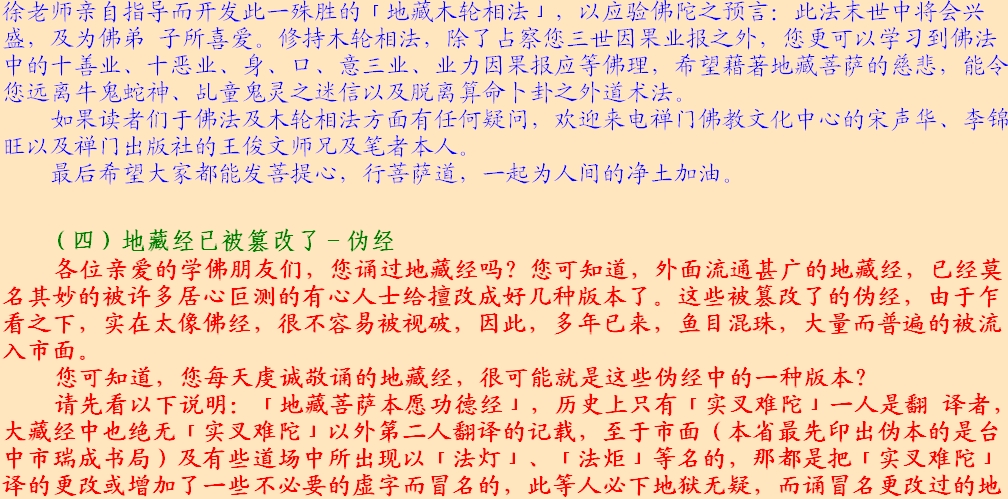 徐老师亲自指导而开发此一殊胜的「地藏木轮相法」，以应验佛陀之预言：此法末世中将会兴
盛，及为佛弟 子所喜爱。修持木轮相法，除了占察您三世因果业报之外，您更可以学习到佛法
中的十善业、十恶业、身、口、意三业、业力因果报应等佛理，希望藉著地藏菩萨的慈悲，能令
您远离牛鬼蛇神、乩童鬼灵之迷信以及脱离算命卜卦之外道术法。
如果读者们于佛法及木轮相法方面有任何疑问，欢迎来电禅门佛教文化中心的宋声华、李锦
旺以及禅门出版社的王俊文师兄及笔者本人。
最后希望大家都能发菩提心，行菩萨道，一起为人间的净土加油。
（四）地藏经已被篡改了－伪经
各位亲爱的学佛朋友们，您诵过地藏经吗？您可知道，外面流通甚广的地藏经，已经莫
名其妙的被许多居心叵测的有心人士给擅改成好几种版本了。这些被篡改了的伪经，由于乍
看之下，实在太像佛经，很不容易被视破，因此，多年已来，鱼目混珠，大量而普遍的被流
入市面。
您可知道，您每天虔诚敬诵的地藏经，很可能就是这些伪经中的一种版本？
请先看以下说明：「地藏菩萨本愿功德经」，历史上只有「实叉难陀」一人是翻 译者，
大藏经中也绝无「实叉难陀」以外第二人翻译的记载，至于市面（本省最先印出伪本的是台
中市瑞成书局）及有些道场中所出现以「法灯」、「法炬」等名的，那都是把「实叉难陀」
译的更改或增加了一些不必要的虚字而冒名的，此等人必下地狱无疑，而诵冒名更改过的地